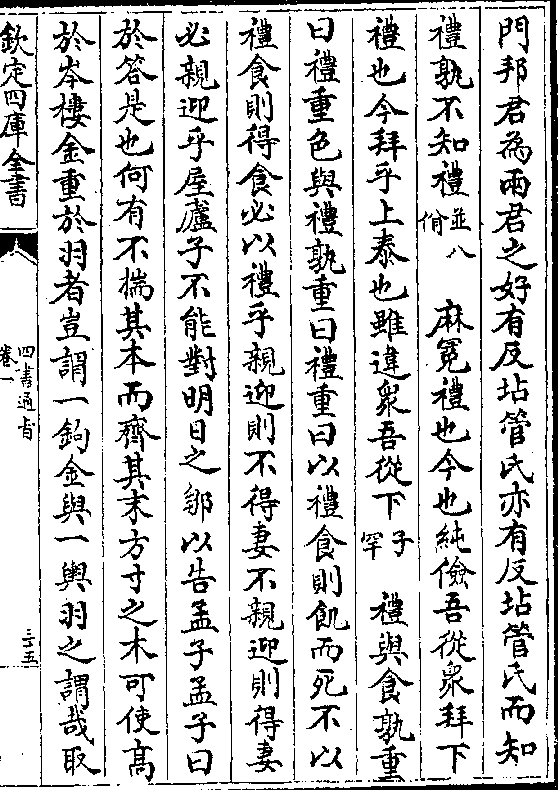 門邦君為兩君之好有反坫管氏亦有反坫管氏而知
禮孰不知禮並八佾 麻冕禮也今也純儉吾從衆拜下
禮也今拜乎上泰也雖違衆吾從下子罕 禮與食孰重
曰禮重色與禮孰重曰禮重曰以禮食則飢而死不以
禮食則得食必以禮乎親迎則不得妻不親迎則得妻
必親迎乎屋廬子不能對明日之鄒以告孟子孟子曰
於答是也何有不揣其本而齊其末方寸之木可使高
於岑樓金重於羽者豈謂一鉤金與一輿羽之謂哉取
欽定四庫全書
四書通旨
卷一
三五